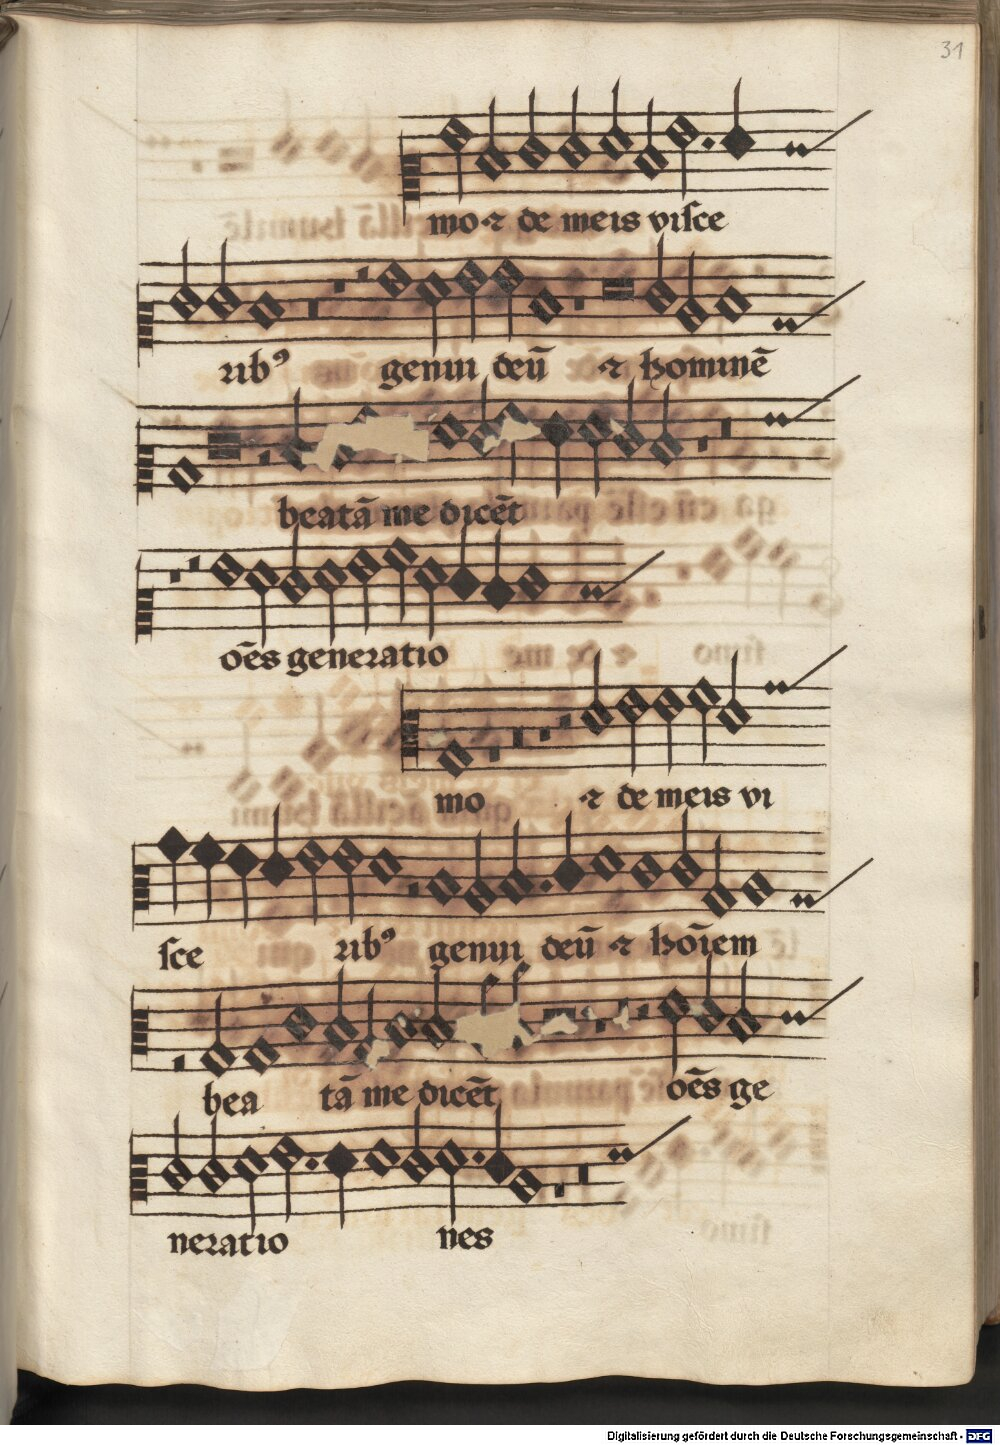 31
mo ⁊ de meis viſce
ribꝰ genui deū ⁊ hominē
beatā me dicēt
oēs generatio
mo ⁊ de meis vi
ſce ribꝰ genui deū ⁊ hoīem
bea tā me dicēt oēs ge
neratio nes
Digitalisierung gefördert durch die Deutsche Forschungsgemeinschaft - DFG